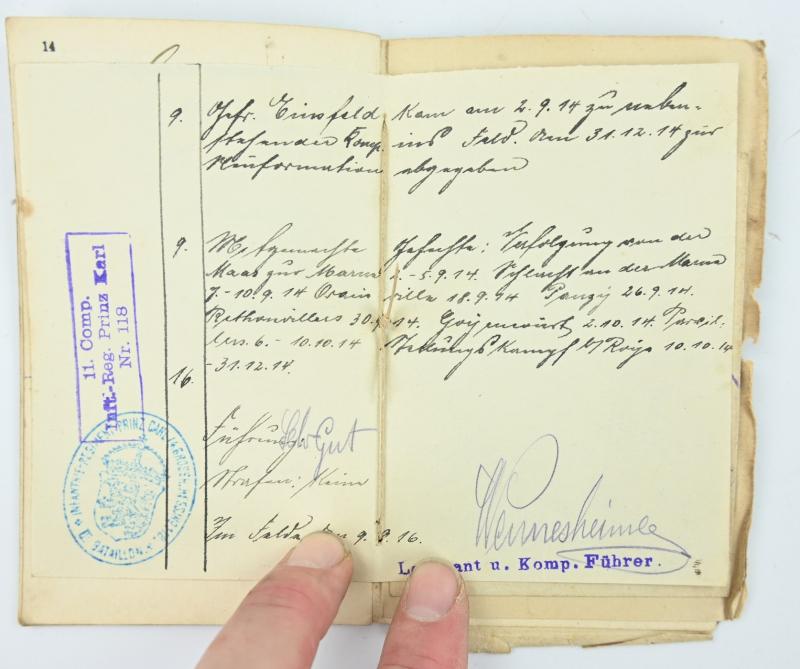 14
9. Gefr. Einsfeld Kam am 2.9.14 zu neben-
stehender Komp. ins Feld. Am 31.12.14 zur
Neuformation abgegeben
9. Mitgemachte Gefechte: Verfolgung von der
Maas zur Marne 2.-5.9.14. Schlacht an der Marne
7.-10.9.14 ville 18.9.14 26.9.14.
Rethonvillers 30.9.14. 2.10.14.
6.-10.10.14 Stellungskampf b/ Roye 10.10.14
-31.12.14.
16.
Führung: Sehr Gut
Strafen: Keine
Im Felde, den 9.8.16.
Leutnant u. Komp. Führer.
11. Comp.
Inft.-Reg. Prinz Karl
Nr. 118
INFANTERIE-REGIMENT PRINZ CARL (4. GROSSH. HESSISCHES) No 118
BATAILLON